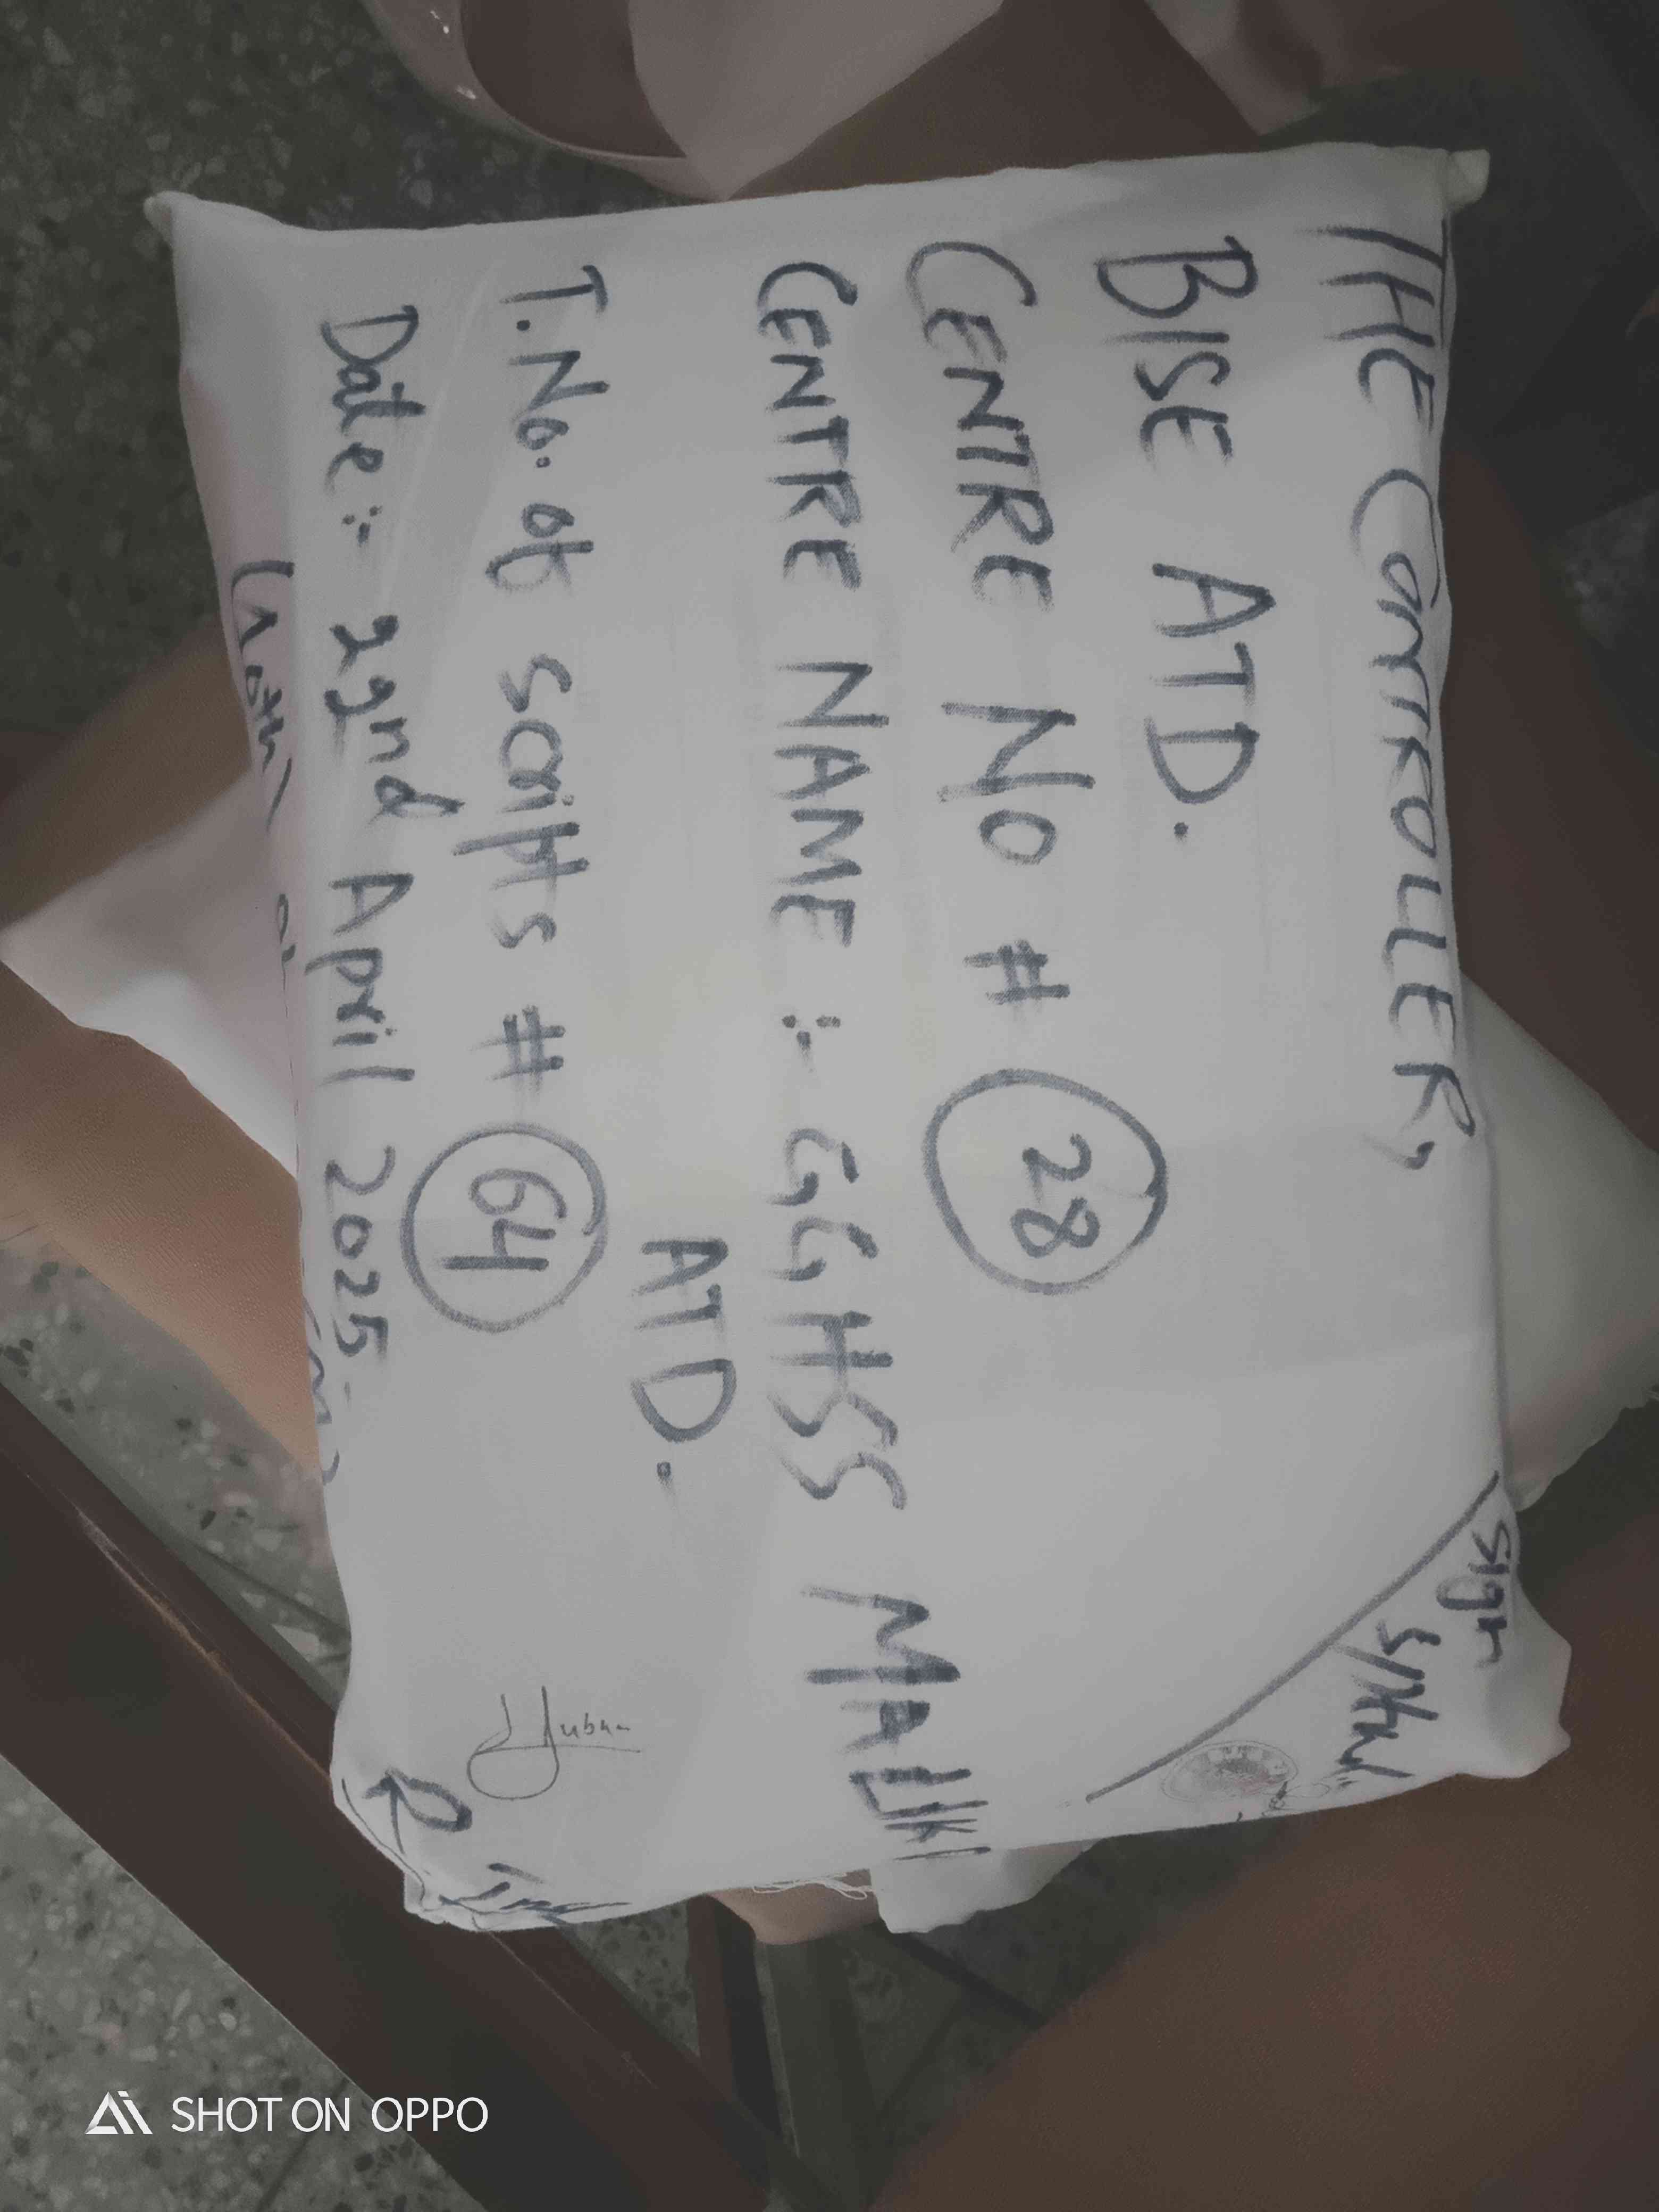 THE CONTROLLER,
BISE ATD.
CENTRE NO # 28
CENTRE NAME :- GGHSS MALIKPURA
ATD.
T.No. of scripts # 64
Date :- 22nd April 2025
Sign
SHOT ON OPPO